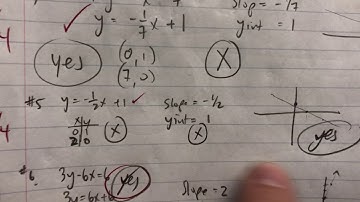 slope = -1/7
y = -1/7 x + 1 ✓ yint = 1
yes (0,1) X
(7,0)
#5 y = -1/2 x + 1 ✓ slope = -1/2
x|y X yint = 1
0|1 X
2|0 yes
#6. 3y - 6x = 6 yes slope = 2
3y = 6x + 6